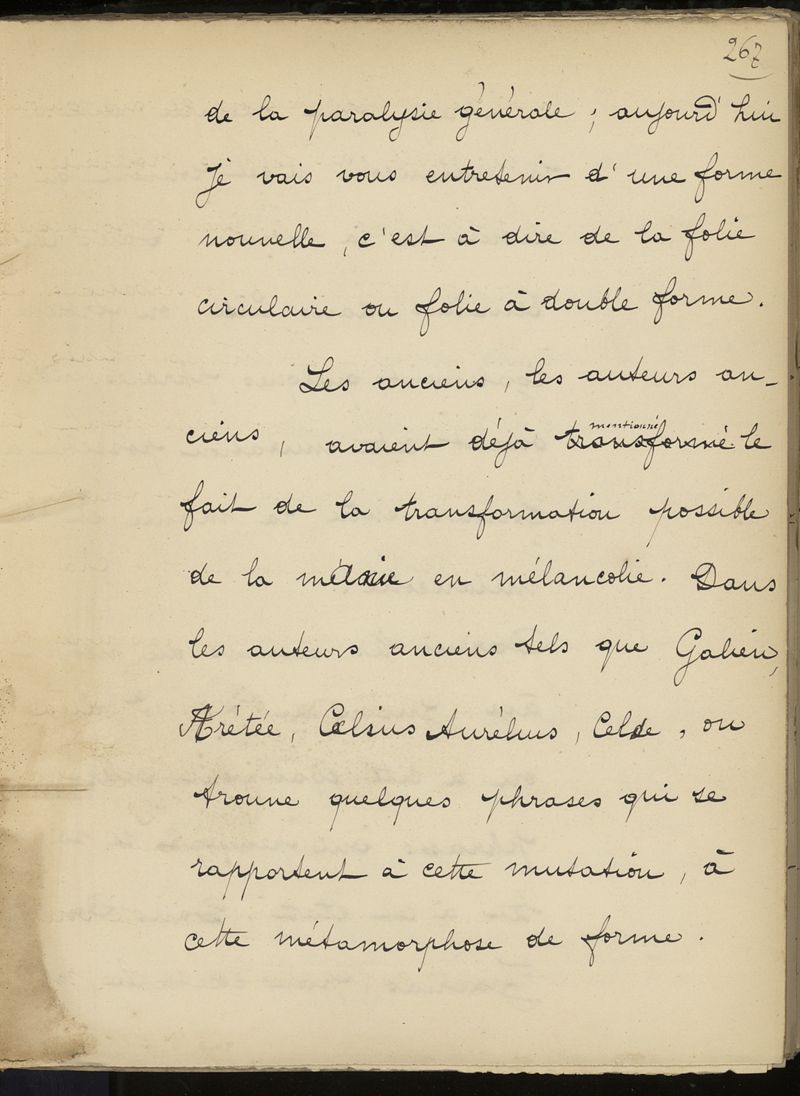 267
de la paralysie générale ; aujourd'hui
je vais vous entretenir d'une forme
nouvelle, c'est à dire de la folie
circulaire ou folie à double forme.
Les anciens, les auteurs an-
mentionné
ciens, avaient déjà transformé le
fait de la transformation possible
de la manie en mélancolie. Dans
les auteurs anciens tels que Galien,
Arétée, Cœlsius Aurélius, Celse, on
trouve quelques phrases qui se
rapportent à cette mutation, à
cette métamorphose de forme.